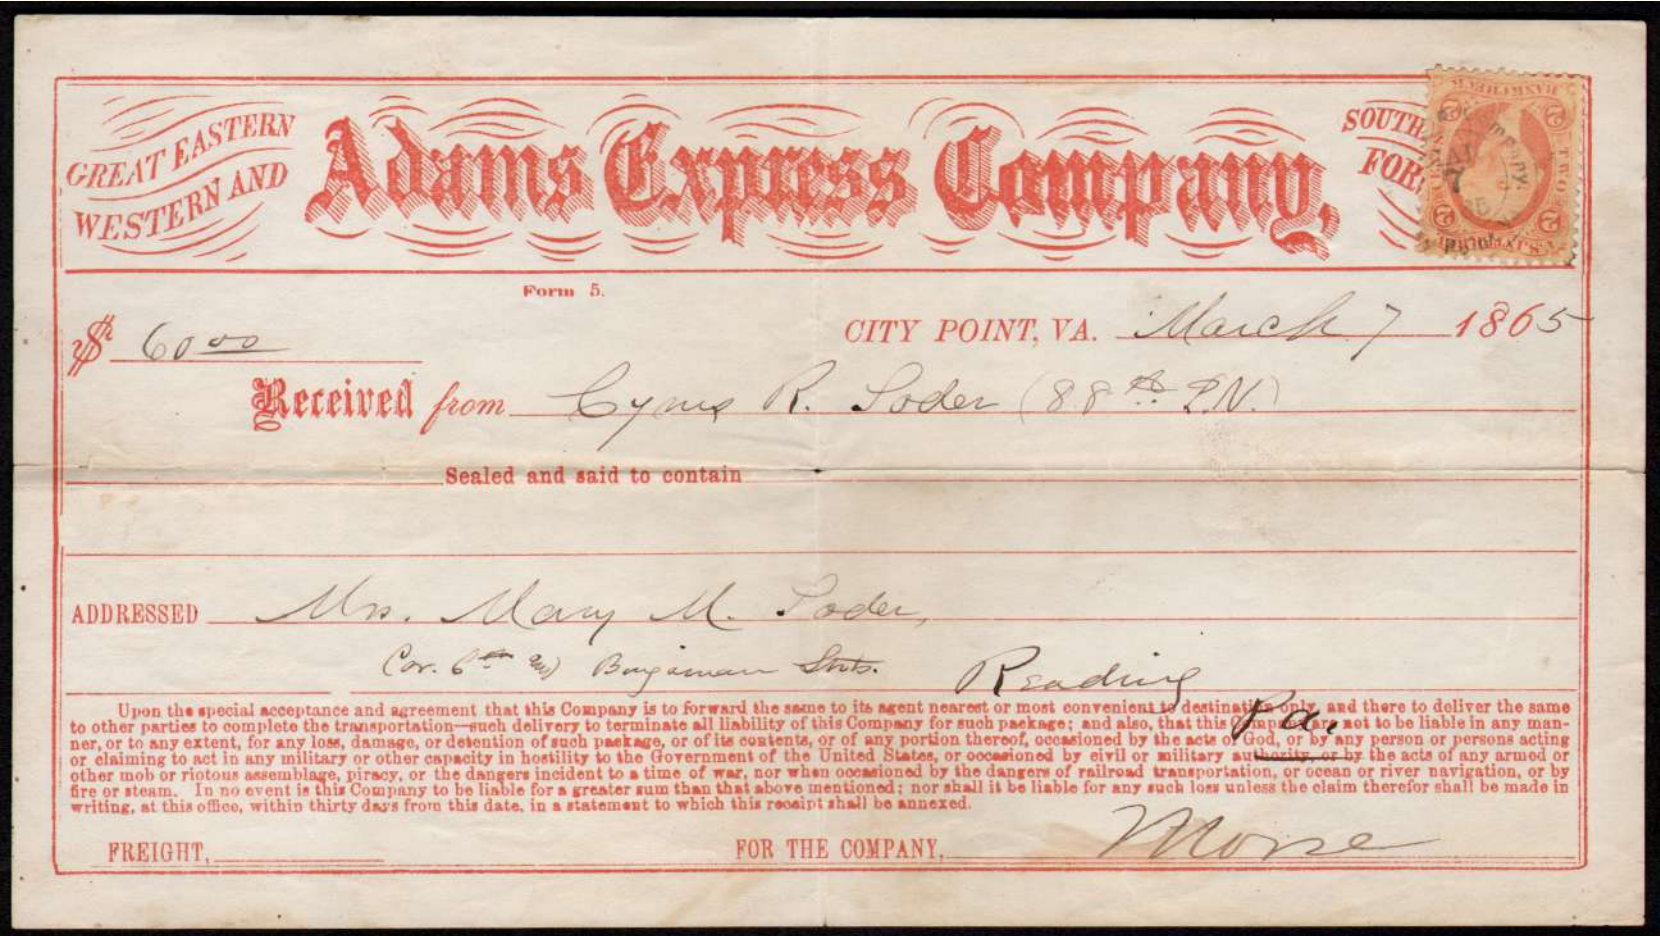 GREAT EASTERN
WESTERN AND
Adams Express Company,
SOUTH
FOR
TWO
Form 5.
$ 60 00
CITY POINT, VA. March 7 1865
Received from Cyrus R. Soder (88th P.V.)
Sealed and said to contain
ADDRESSED Mrs. Mary M. Soder,
Cor. 6th and Bingaman Strts. Reading
Pa.
Upon the special acceptance and agreement that this Company is to forward the same to its agent nearest or most convenient to destination only, and there to deliver the same
to other parties to complete the transportation—such delivery to terminate all liability of this Company for such package; and also, that this Company are not to be liable in any man-
ner, or to any extent, for any loss, damage, or detention of such package, or of its contents, or of any portion thereof, occasioned by the acts of God, or by any person or persons acting
or claiming to act in any military or other capacity in hostility to the Government of the United States, or occasioned by civil or military authority, or by the acts of any armed or
other mob or riotous assemblage, piracy, or the dangers incident to a time of war, nor when occasioned by the dangers of railroad transportation, or ocean or river navigation, or by
fire or steam. In no event is this Company to be liable for a greater sum than that above mentioned; nor shall it be liable for any such loss unless the claim therefor shall be made in
writing, at this office, within thirty days from this date, in a statement to which this receipt shall be annexed.
FREIGHT,
FOR THE COMPANY, Morse